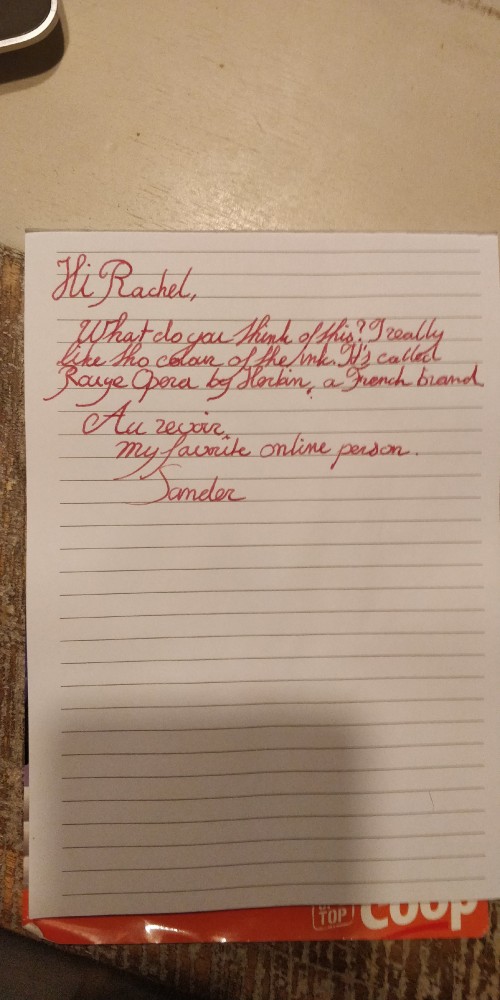 Hi Rachel,
What do you think of this? I really
like the colour of the ink. It's called
Rouge Opera by Herbin, a French brand
Au revoir,
my favorite online person.
Sander
TOP
coop